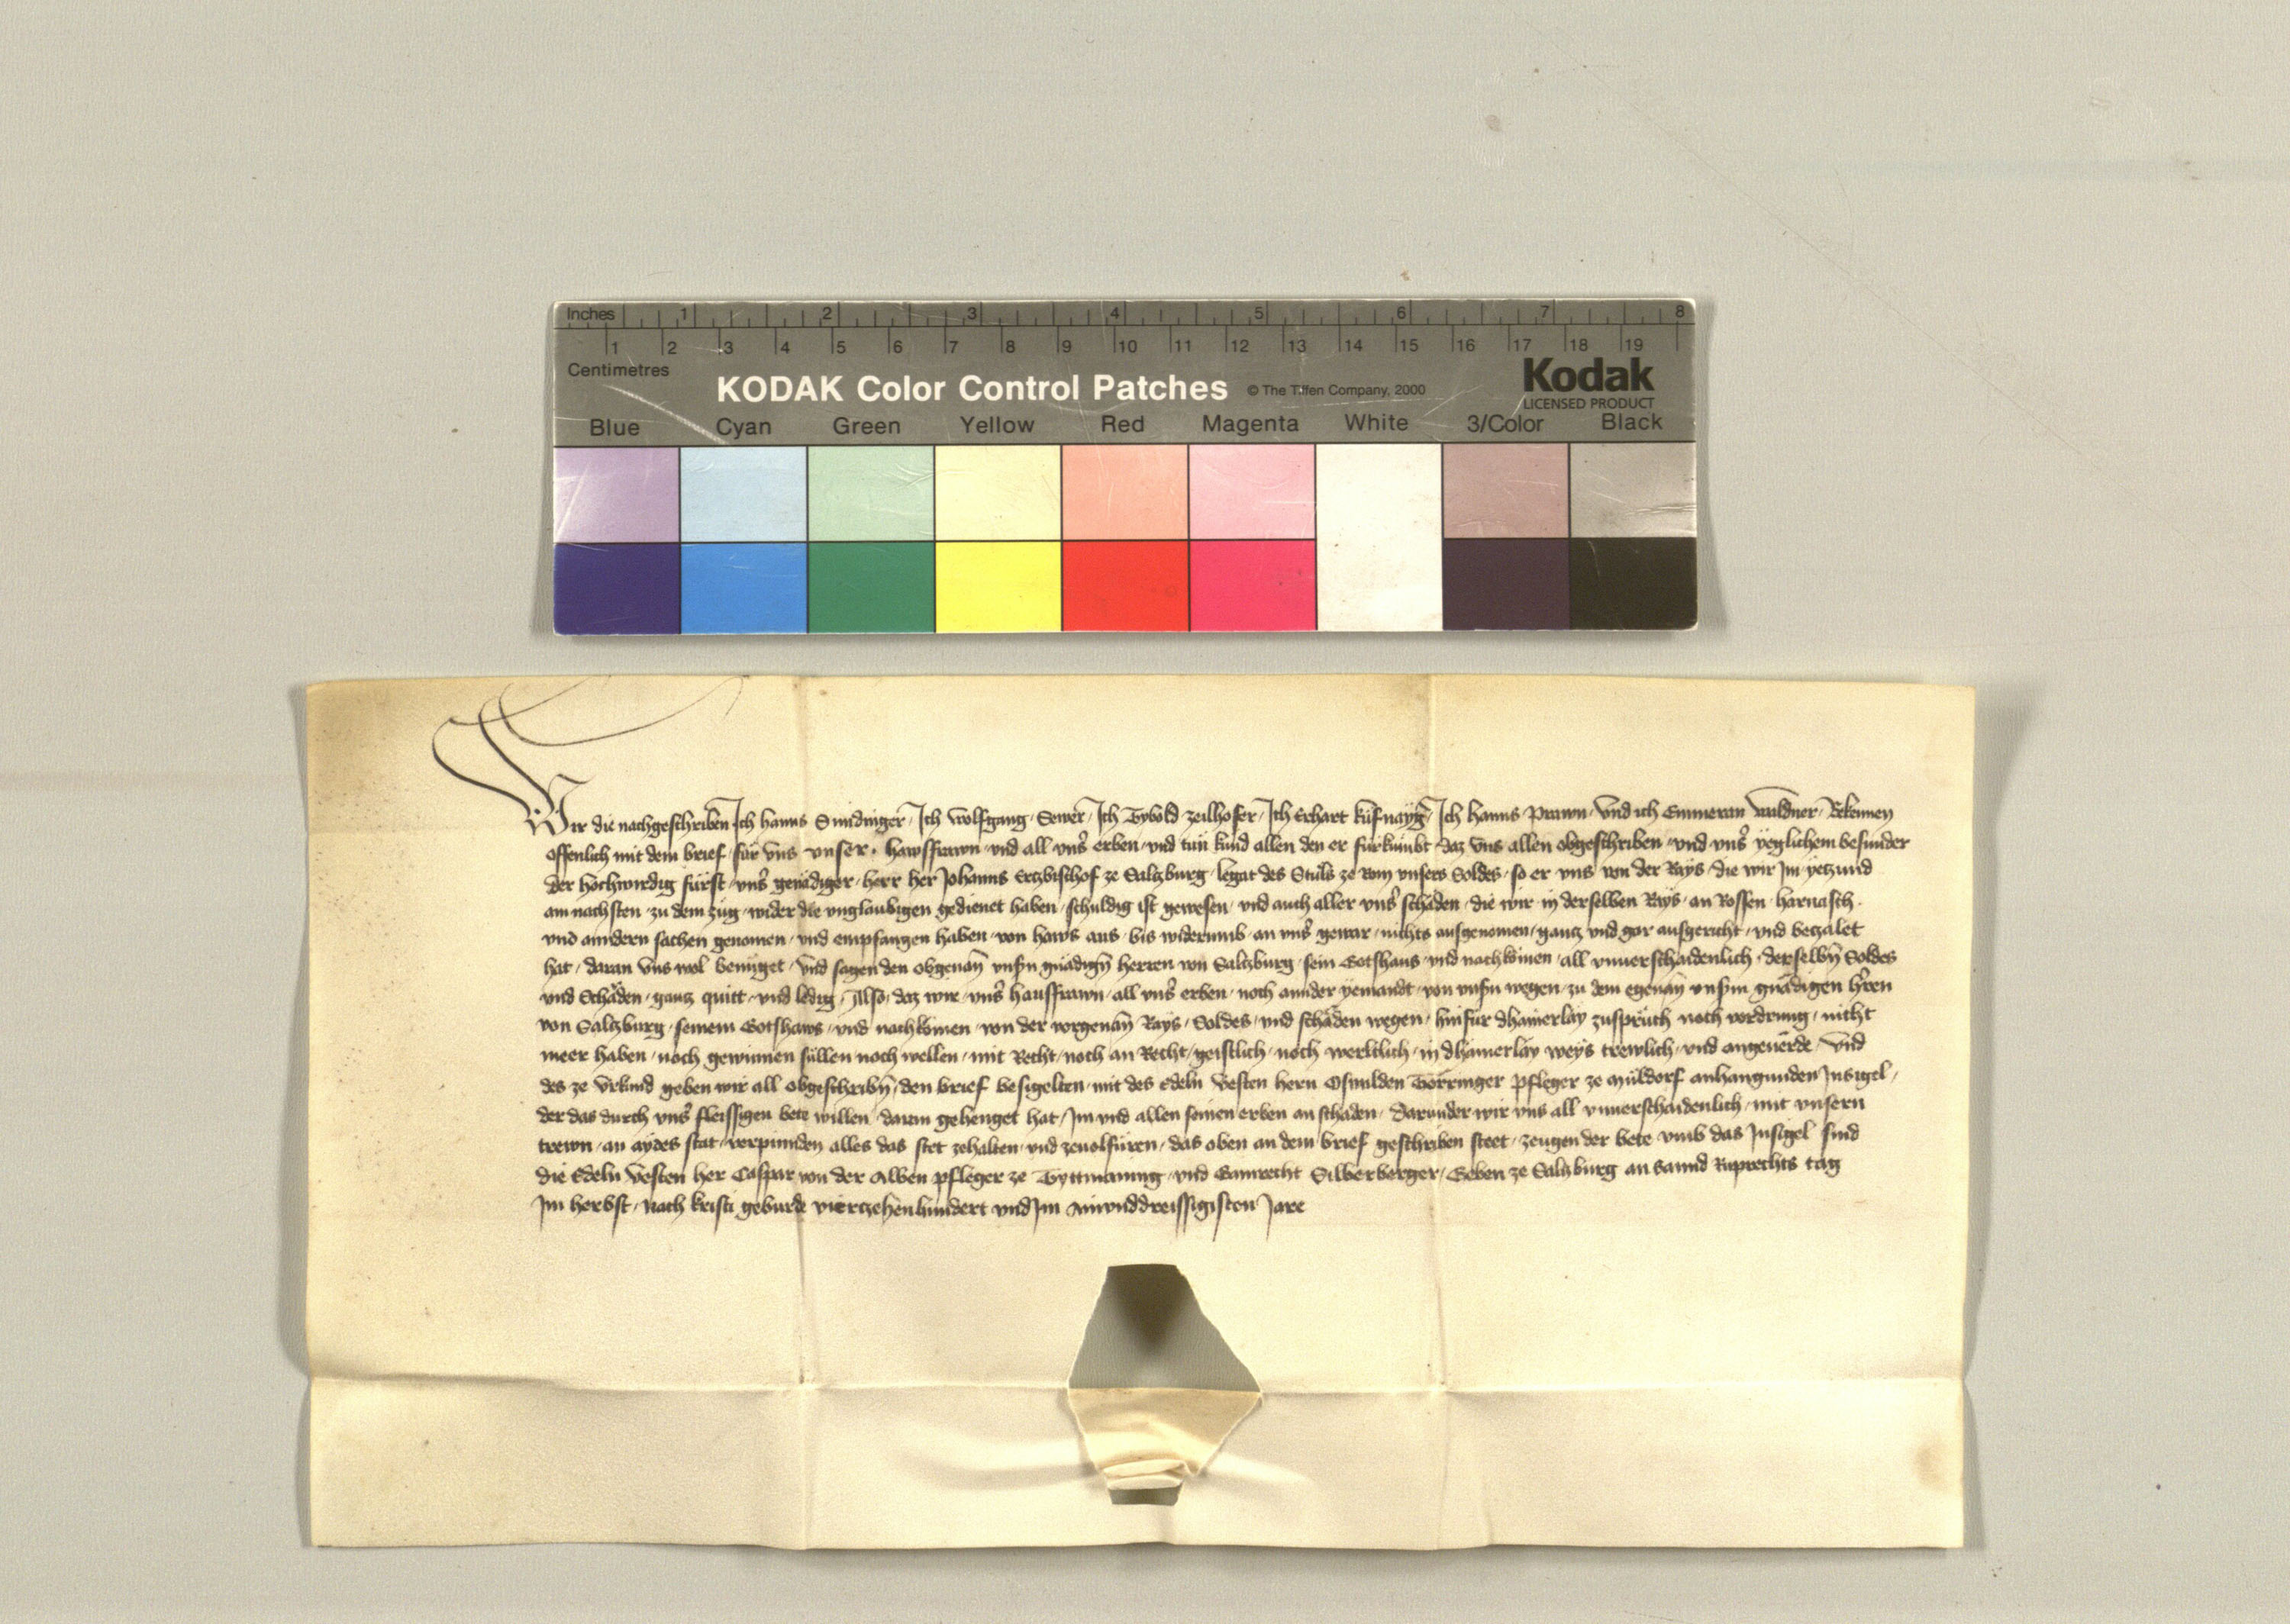 Inches 1 2 3 4 5 6 7 8
1 2 3 4 5 6 7 8 9 10 11 12 13 14 15 16 17 18 19
Centimetres
KODAK Color Control Patches © The Tiffen Company, 2000 Kodak
LICENSED PRODUCT
Blue Cyan Green Yellow Red Magenta White 3/Color Black
Wir die nachgeschriben Ich hanns Smidinger, Ich Wolfgang Sewer, Ich Tybold zeilhofer, Ich Erhart Ich hanns Prawn, Vnd ich Emmeran Waldner, Bekennen
offenlich mit dem brief, für Vns vnser, hawsfrawn, vnd all vnsˀ erben, vnd tun kund allen den er fürkumbt, daz Vns allen obgeschriben, vnd vnsˀ yeglichem besunder
der hochwirdig fürst, vnsˀ genädiger, herr her Johanns Ertzbischof ze Saltzburg, legat des Stuls ze Rom vnsers Soldes, so er vns von der Rays, die wir Im yetzund
am nachsten, zu dem zug, wider die vnglaubigen gedienet haben, schuldig ist gewesen, vnd auch aller vnsˀ schäden, die wir in derselben Rays, an Rossen, harnasch,
vnd anndern sachen genomen, vnd empfangen haben, von haws aus, bis widerumb, an vnsˀ gewar, nichts ausgenomen, gantz vnd gar ausgericht, vnd betzalet
hat, daran Vns wol benüget, Vnd sagen den obgenañ vnsʼn gnädigñ herren von Saltzburg, sein Gotshaus, vnd nachkomen, all vnuerschaidenlich, derselbñ Soldes
vnd Schäden, gantz quitt, vnd ledig, Also, daz wir, vnsˀ hausfrawn, all vnsˀ erben, noch annder yemandt, von vnsʼn wegen, zu dem egenañ vnsʼm gnädigen hˀren
von Saltzburg, seinem Gotshaws, vnd nachkomen, von der vorgenañ Rays, Soldes, vnd schäden wegen, hinfür dhainerlay zuspruch noch vordrung, nicht
meer haben, noch gewinnen süllen noch wellen, mit Recht, noch an Recht, geistlich, noch werltlich, in dhainerlay weys trewlich, vnd angeuerde, Vnd
des ze Vrkund geben wir all obgeschribñ, den brief besigelten, mit des Edeln Vesten hern Oswalden Törringer pfleger ze Müldorf anhangunden Insigel,
der das durch vnsˀ fleissigen bete willen, daran gehenget hat, Im vnd allen seinen erben an schaden, darunder wir vns all vnuerschaidenlich, mit vnsern
trewn, an aydes stat, verpinnden alles das stet zehalten, vnd zeuolfüren, das oben an dem brief geschriben steet, zeugen der bete vmb das Insigel sind
die Edeln Vesten her Caspar von der Alben pfleger ze Tyttmanung, vnd Gamrecht Silberberger, Geben ze Saltzburg an Sannd Ruprechts tag
Im herbst, Nach kristi geburde viertzehenhundert vnd Im ainvnddreissigisten Jare